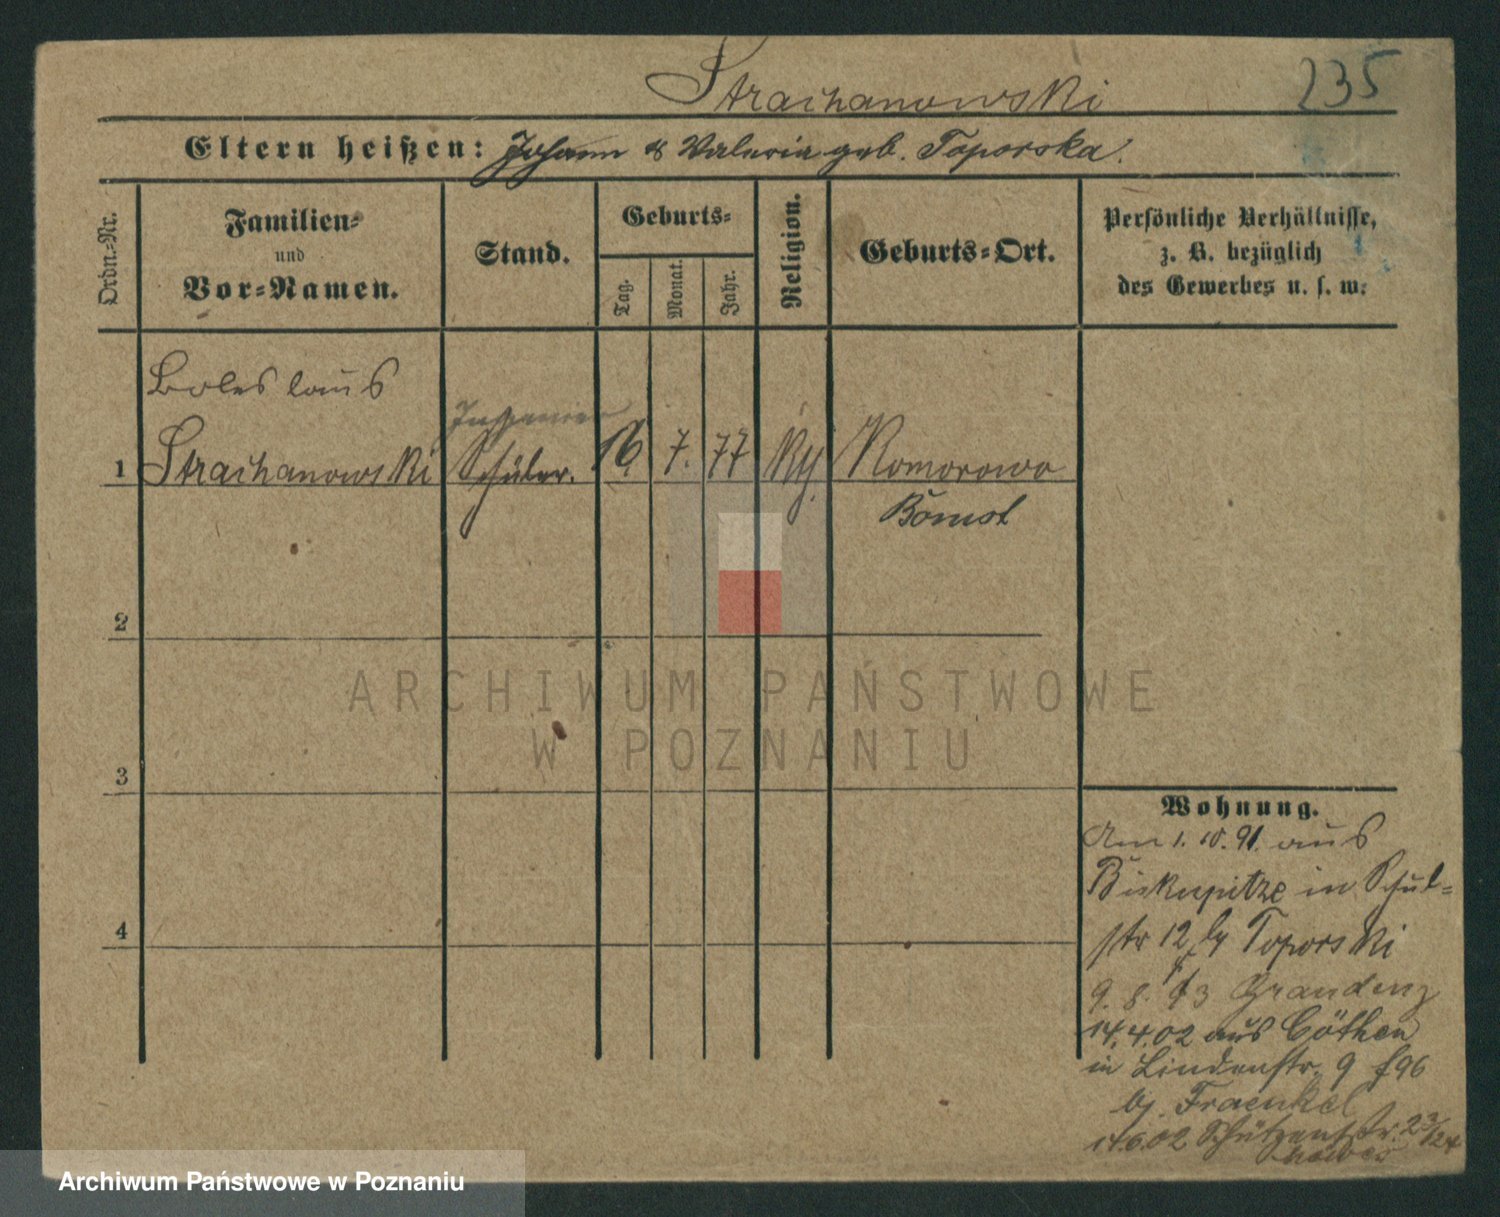 Strachanowski
235
Eltern heißen: Johann & Valeria geb. Toporska.
Ordn.-Nr.
Familien- und Vor-Namen.
Stand.
Geburts-
Tag.
Monat.
Jahr.
Religion.
Geburts-Ort.
Persönliche Verhältnisse,
z. B. bezüglich
des Gewerbes u. s. w.
Boleslaus
Ingenieur
1 Strachanowski Schüler. 16. 7. 77 Komorowo
Bomst
2
3
4
ARCHIWUM PAŃSTWOWE
W POZNANIU
Wohnung.
Am 1. 10. 91. aus
Biskupitze in Schul-
str 12 by Toporski
9. 8. 93 Graudenz
14.4.02 aus Cöthen
in Lindenstr. 9 f96
bj. Fraenkel
14.6.02 Schützenstr. 23/24
Archiwum Państwowe w Poznaniu